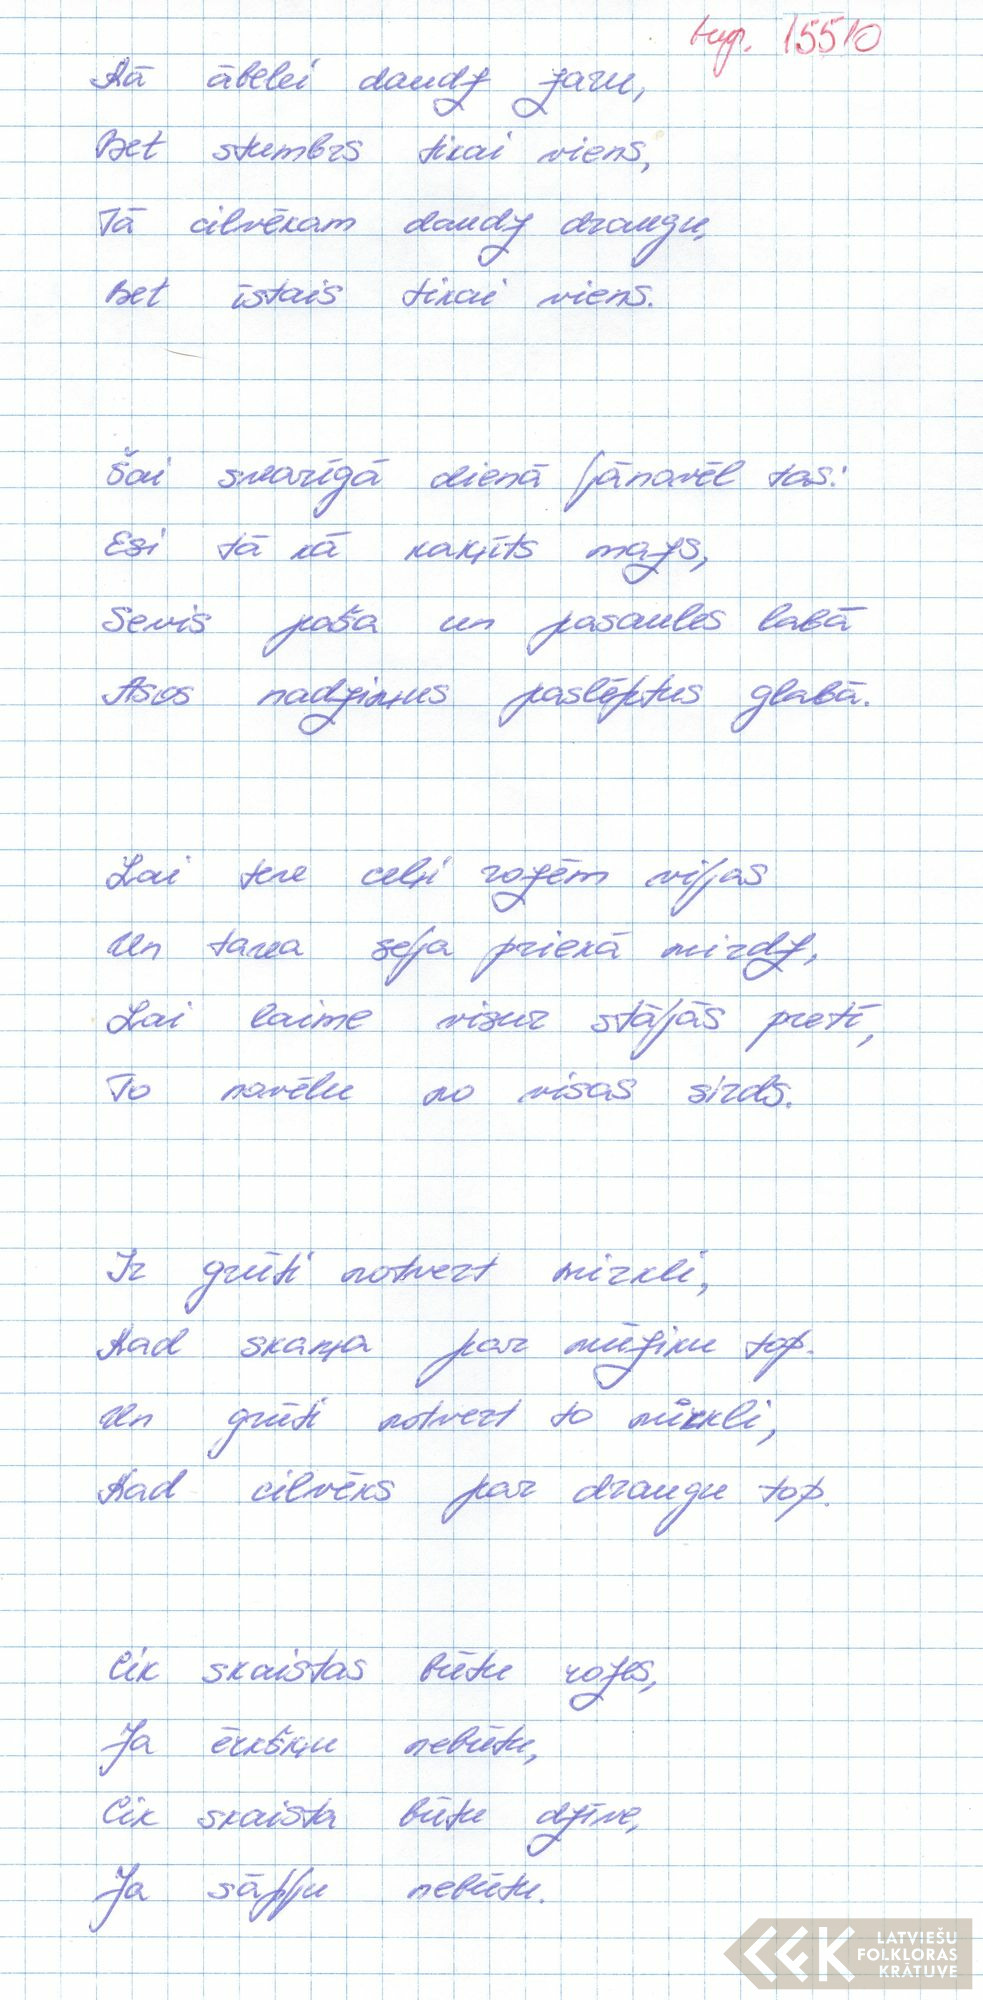 15510
Kā ābelei daudz zaru,
Bet stumbrs tikai viens,
Tā cilvēkam daudz draugu,
Bet īstais tikai viens.
Šai svarīgā dienā jānovēl tas:
Esi tā kā kaķītis mazs,
Sevis paša un pasaules labā
Asos nadziņus paslēptus glabā.
Lai tevi ceļi rozēm vijas
Un tava seja priekā mirdz,
Lai laime visur stājās pretī,
To novēlu no visas sirds.
Ir grūti notvert mirkli,
Kad skaņa par mūziku top.
Un grūti notvert to mirkli,
Kad cilvēks par draugu top.
Cik skaistas būtu rozes,
Ja ērkšķu nebūtu,
Cik skaista būtu dzīve,
Ja sāpju nebūtu.
LATVIEŠU
FOLKLORAS
KRĀTUVE